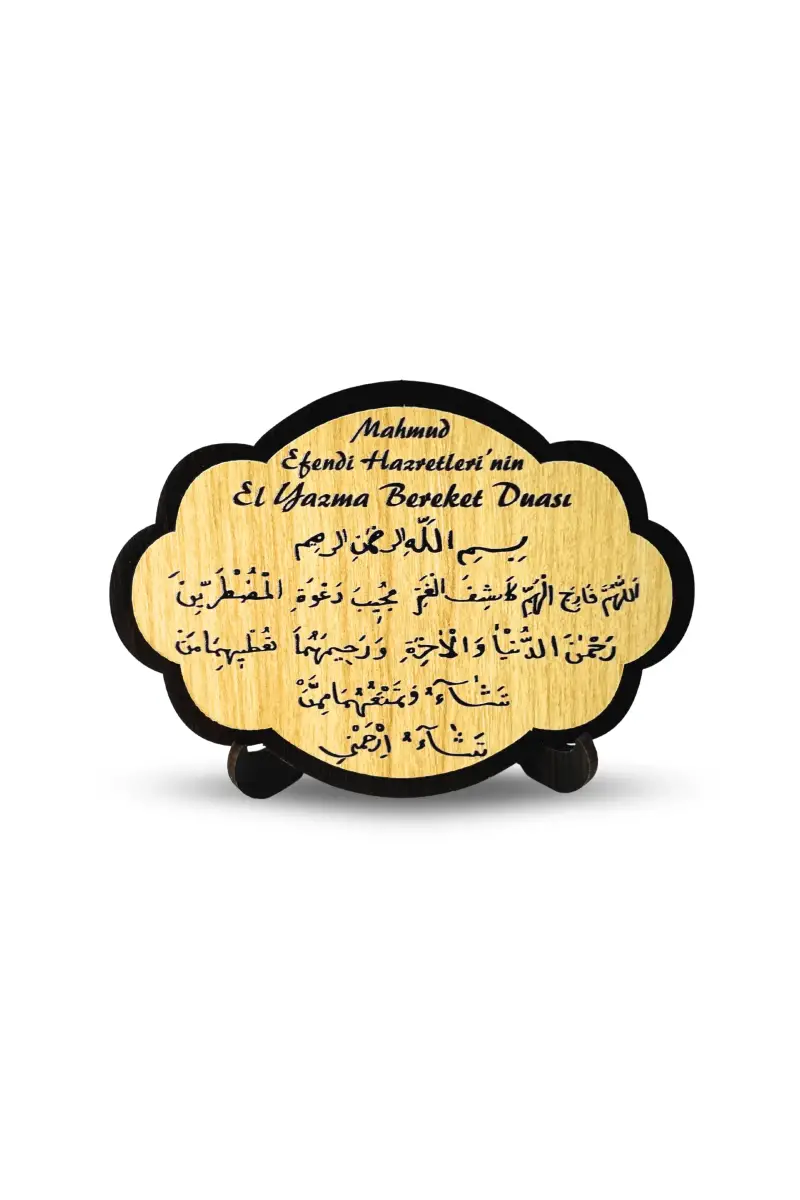 Mahmud
Efendi Hazretleri'nin
El Yazma Bereket Duası
بِسْمِ اللَّهِ الرَّحْمٰنِ الرَّحِيمِ
اَللّٰهُمَّ فَارِجَ الْهَمِّ كَاشِفَ الْغَمِّ مُجِيبَ دَعْوَةِ الْمُضْطَرِّينَ
رَحْمٰنَ الدُّنْيَا وَالْاٰخِرَةِ وَرَحِيمَهُمَا تُعْطِيهِمَا مَنْ
تَشَاءُ وَتَمْنَعُهُمَا مِمَّنْ
تَشَاءُ اِرْحَمْنِي